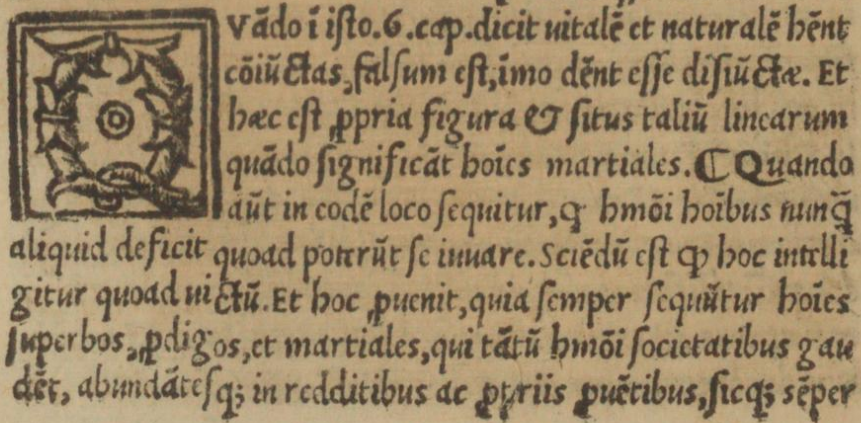 QVādo ī iſto.6.cap.dicit uitalē et naturalē hēnt
cōiūctas, falſum eſt, īmo dēnt eſſe diſiūctæ. Et
hæc eſt ꝓpria figura & ſitus taliū linearum
quādo ſignificāt hoīes martiales. ¶ Quando
aūt in eodē loco ſequitur, ꝙ hmōi hoībus nunq̄
aliquid deficit quoad poterūt ſe iuuare. Sciēdū eſt ꝙ hoc intelli
gitur quoad uictū. Et hoc ꝓuenit, quia ſemper ſequūtur hoīes
ſuperbos, ꝓdigos, et martiales, qui tātū hmōi ſocietatibus gau
dēt, abundāteſq; in redditibus ac ꝓuētibus, ſicq; sēper